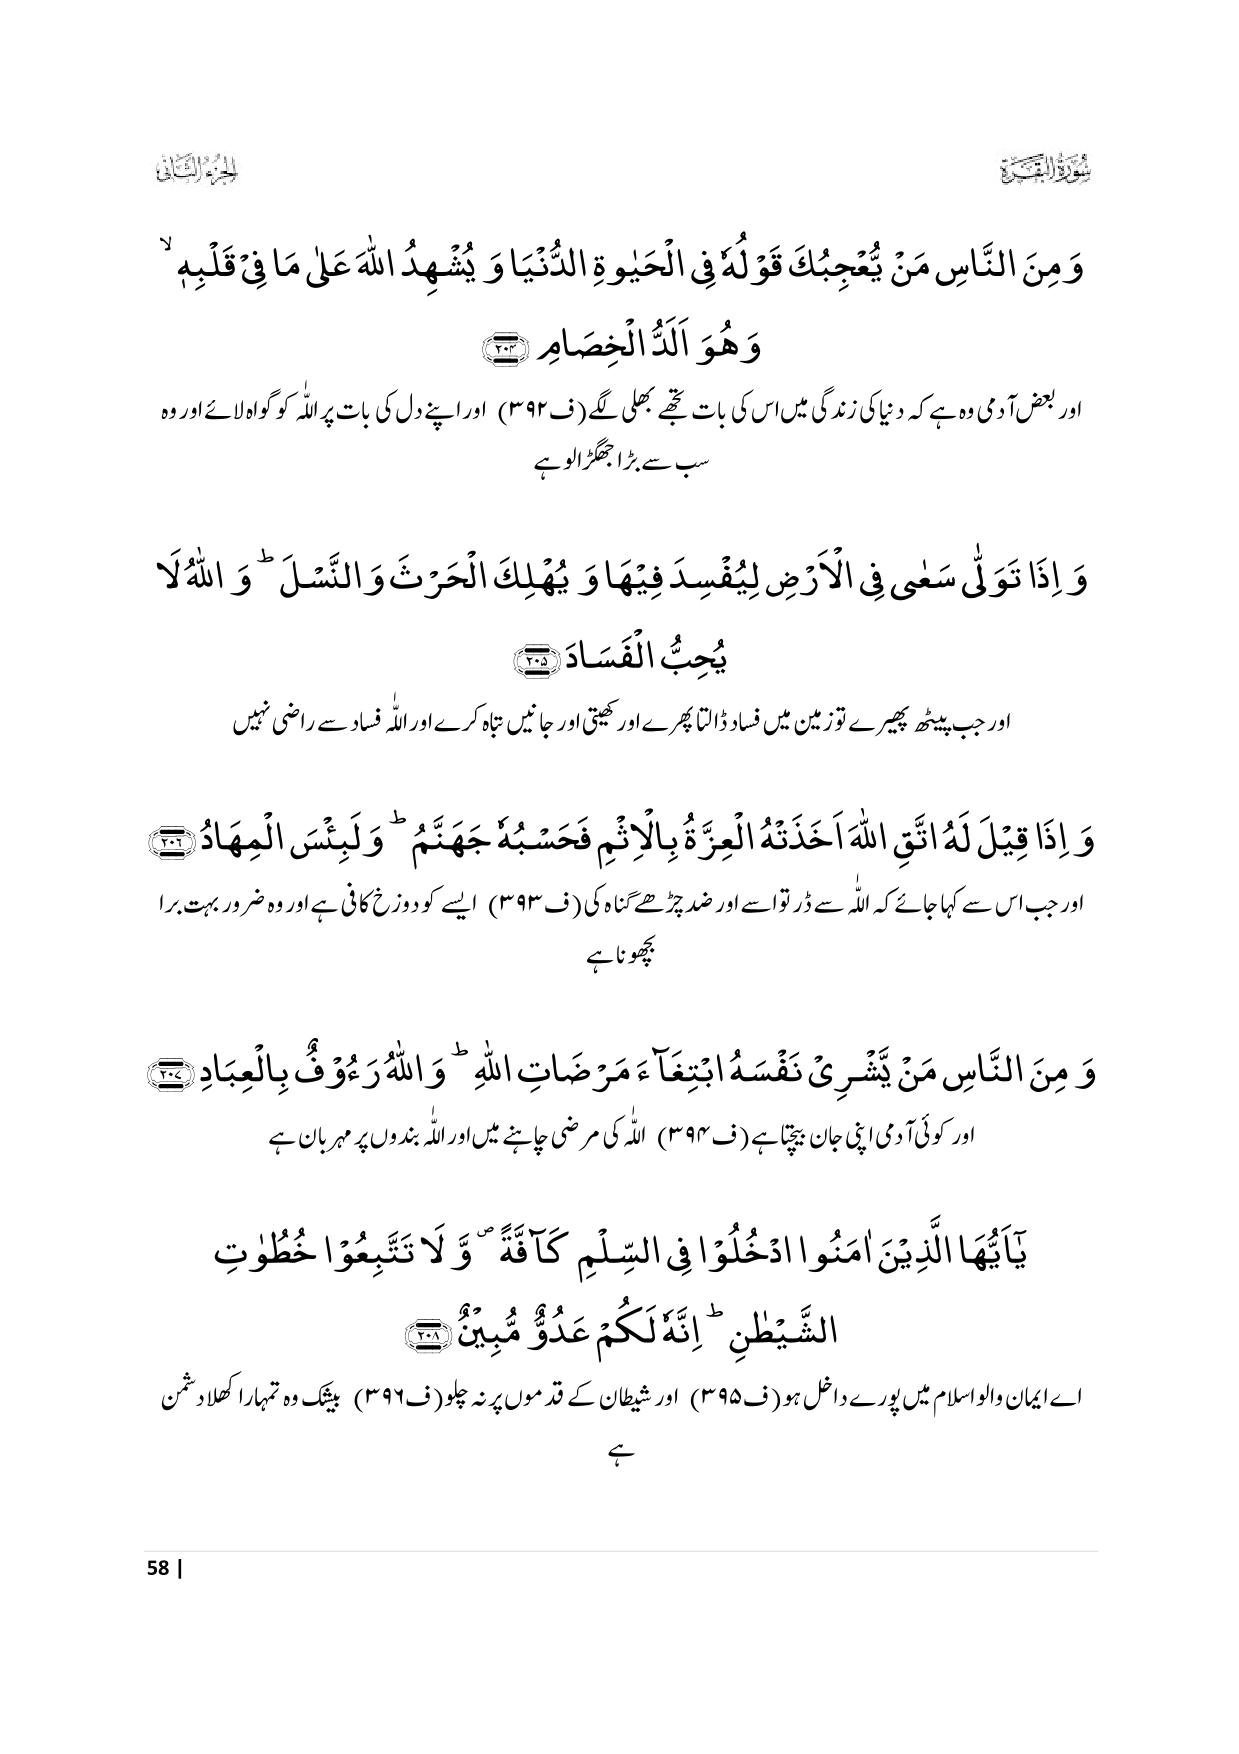 سُوْرَةُ الْبَقَرَة
الجزء الثانی
وَ مِنَ النَّاسِ مَنْ یُّعْجِبُكَ قَوْلُهٗ فِی الْحَیٰوةِ الدُّنْیَا وَ یُشْهِدُ اللّٰهَ عَلٰى مَا فِیْ قَلْبِهٖۙ
وَ هُوَ اَلَدُّ الْخِصَامِ ﴿۲۰۴﴾
اور بعض آدمی وہ ہے کہ دنیا کی زندگی میں اس کی بات تجھے بھلی لگے (ف۳۹۲) اور اپنے دل کی بات پر اللّٰہ کو گواہ لائے اور وہ
سب سے بڑا جھگڑالو ہے
وَ اِذَا تَوَلّٰى سَعٰى فِی الْاَرْضِ لِیُفْسِدَ فِیْهَا وَ یُهْلِكَ الْحَرْثَ وَ النَّسْلَؕ وَ اللّٰهُ لَا
یُحِبُّ الْفَسَادَ ﴿۲۰۵﴾
اور جب پیٹھ پھیرے تو زمین میں فساد ڈالتا پھرے اور کھیتی اور جانیں تباہ کرے اور اللّٰہ فساد سے راضی نہیں
وَ اِذَا قِیْلَ لَهُ اتَّقِ اللّٰهَ اَخَذَتْهُ الْعِزَّةُ بِالْاِثْمِ فَحَسْبُهٗ جَهَنَّمُؕ وَ لَبِئْسَ الْمِهَادُ ﴿۲۰۶﴾
اور جب اس سے کہا جائے کہ اللّٰہ سے ڈر تو اسے اور ضد چڑھے گناہ کی (ف۳۹۳) ایسے کو دوزخ کافی ہے اور وہ ضرور بہت برا
بچھونا ہے
وَ مِنَ النَّاسِ مَنْ یَّشْرِیْ نَفْسَهُ ابْتِغَآءَ مَرْضَاتِ اللّٰهِؕ وَ اللّٰهُ رَءُوْفٌۢ بِالْعِبَادِ ﴿۲۰۷﴾
اور کوئی آدمی اپنی جان بیچتا ہے (ف۳۹۴) اللّٰہ کی مرضی چاہنے میں اور اللّٰہ بندوں پر مہربان ہے
یٰۤاَیُّهَا الَّذِیْنَ اٰمَنُوا ادْخُلُوْا فِی السِّلْمِ كَآفَّةً۪ وَّ لَا تَتَّبِعُوْا خُطُوٰتِ
الشَّیْطٰنِؕ اِنَّهٗ لَكُمْ عَدُوٌّ مُّبِیْنٌ ﴿۲۰۸﴾
اے ایمان والو اسلام میں پورے داخل ہو (ف۳۹۵) اور شیطان کے قدموں پر نہ چلو (ف۳۹۶) بیشک وہ تمہارا کھلا دشمن
ہے
58 |